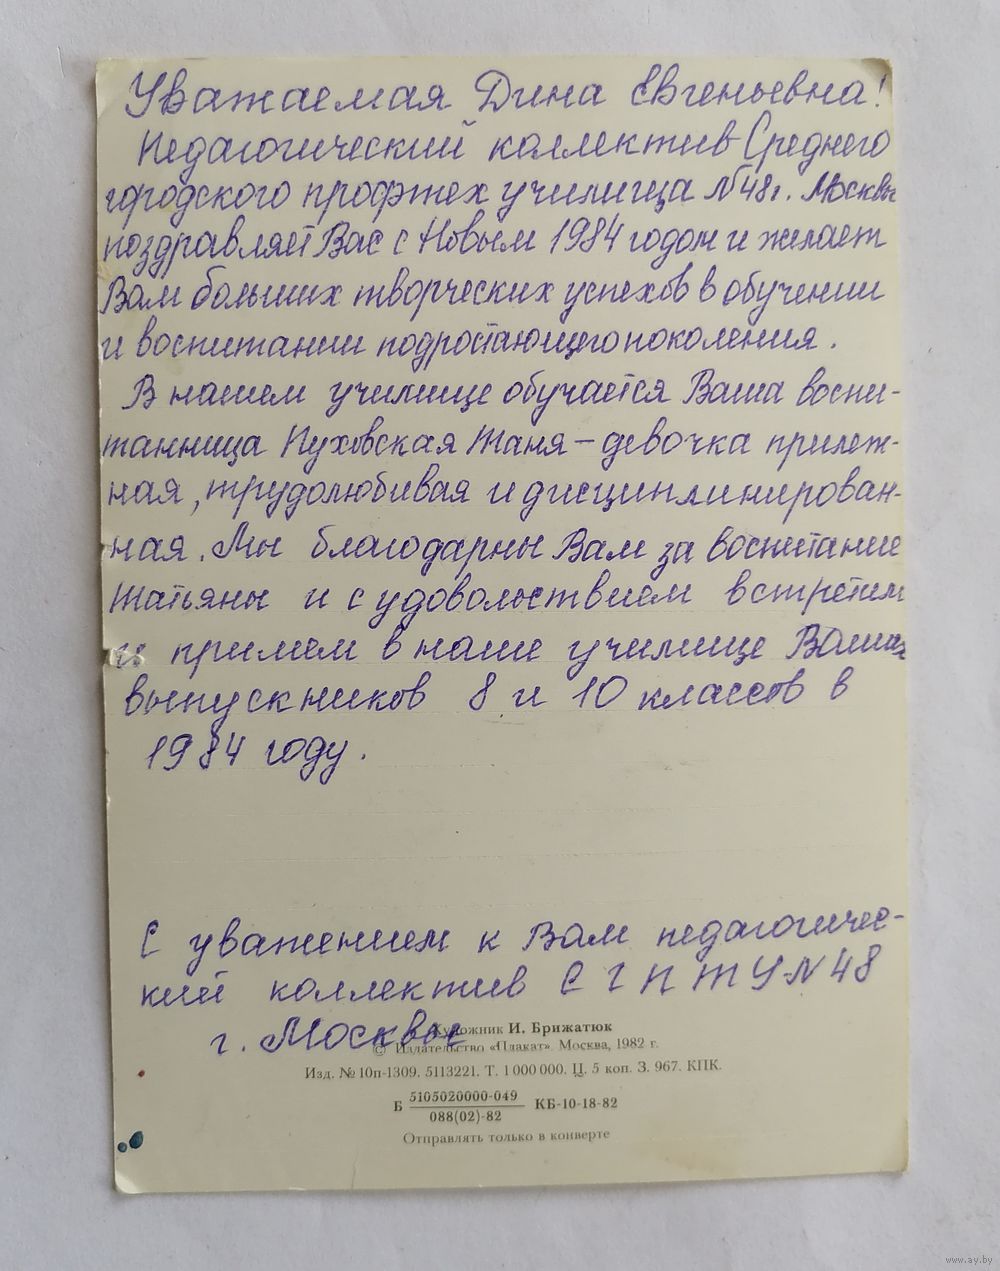 Уважаемая Дина Евгеньевна!
Педагогический коллектив Среднего
городского профтех училища №48 г. Москвы
поздравляет Вас с Новым 1984 годом и желает
Вам больших творческих успехов в обучении
и воспитании подростающего поколения.
В нашем училище обучается Ваша воспи-
танница Пуховская Таня – девочка прилеж-
ная, трудолюбивая и дисциплинирован-
ная. Мы благодарны Вам за воспитание
Татьяны и с удовольствием встретим
и примем в наше училище Ваших
выпускников 8 и 10 классов в
1984 году.
С уважением к Вам педагогичес-
кий коллектив СГПТУ-№48
г. Москвы
Художник И. Брижатюк
© Издательство «Плакат». Москва, 1982 г.
Изд. № 10п-1309. 5113221. Т. 1 000 000. Ц. 5 коп. З. 967. КПК.
Б 5105020000-049 КБ-10-18-82
088(02)-82
Отправлять только в конверте
www.ay.by